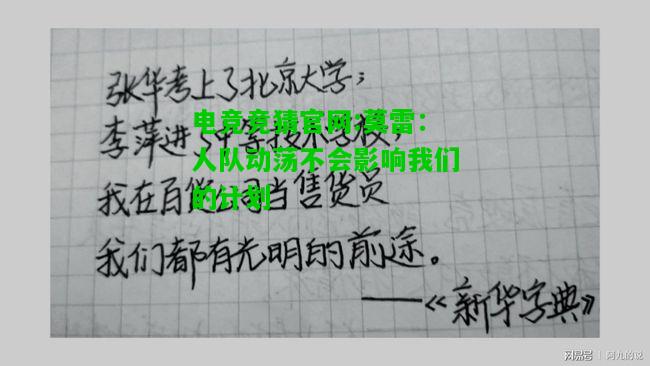 张华考上了北京大学；
李萍进了中等技术学校；
我在百货公司当售货员
我们都有光明的前途。
——《新华字典》
电竞竞猜官网:莫雷：
人队动荡不会影响我们
的计划
网易号 | 阿九的说